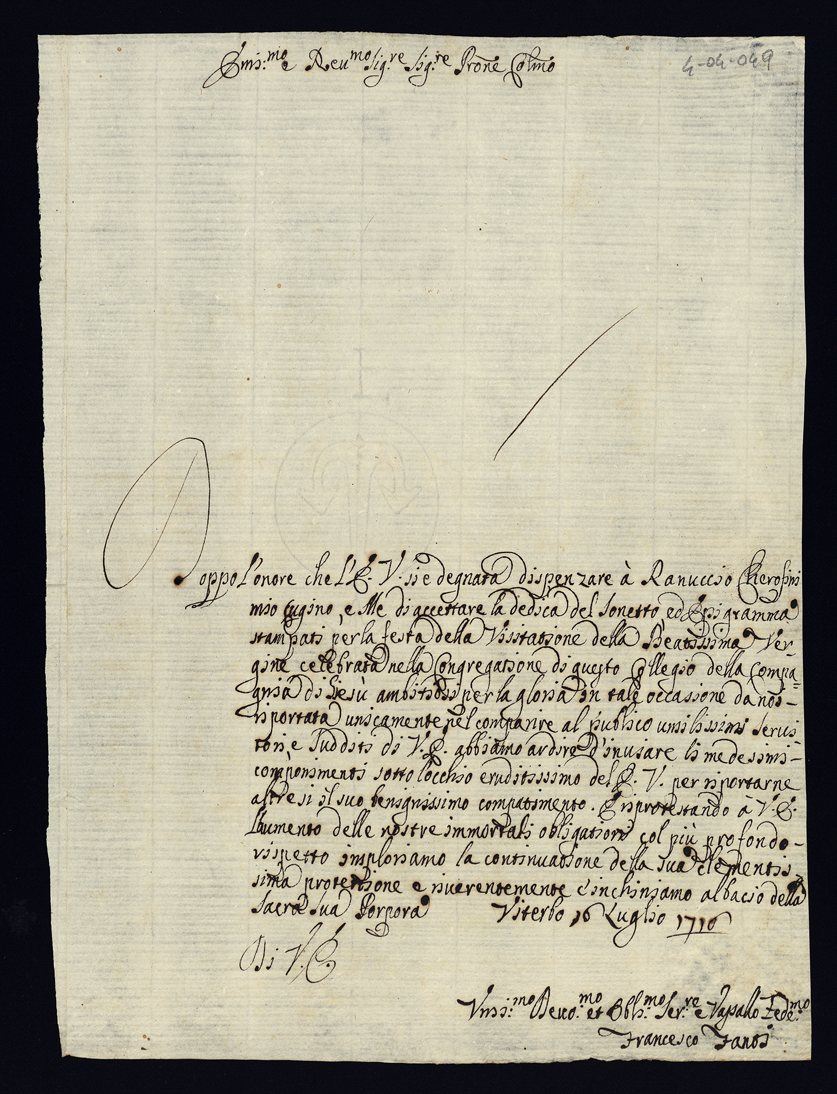 4-04-049
Emis:mo e Reumo Sig:re Sig:re Prone Colmo
Doppo l'onore che l'E. V. si è degnata dispenzare à Ranuccio Cherofini
mio cugino, e Me di accettare la dedica del Sonetto, ed Epigramma
stampati per la festa della Visitatione della Beatissima Ver-
gine celebrata nella Congregatione di questo Collegio della Compa=
gnia di Giesù ambitiosi per la gloria in tale occasione da noi-
riportata unicamente nel comparire al publico umilissimi Servi
tori e Sudditi di V. E. abbiamo ardire d'inviare li medesimi-
componimenti sotto l'occhio eruditissimo dell'E. V. per riportarne
altresi il suo benignissimo compatimento. E riprotestando à V. E.
l'aumento delle nostre immortali obligationi col più profondo-
rispetto imploriamo la continuatione della sua clementis
sima protettione e riverentemente c'inchiniamo al bacio della
Sacra Sua Porpora Viterbo 16 Luglio 1716
Di V. E.
Umis:mo Deuo:mo et Obli:mo Ser:re e Vassallo Fede:mo
Francesco Fanti